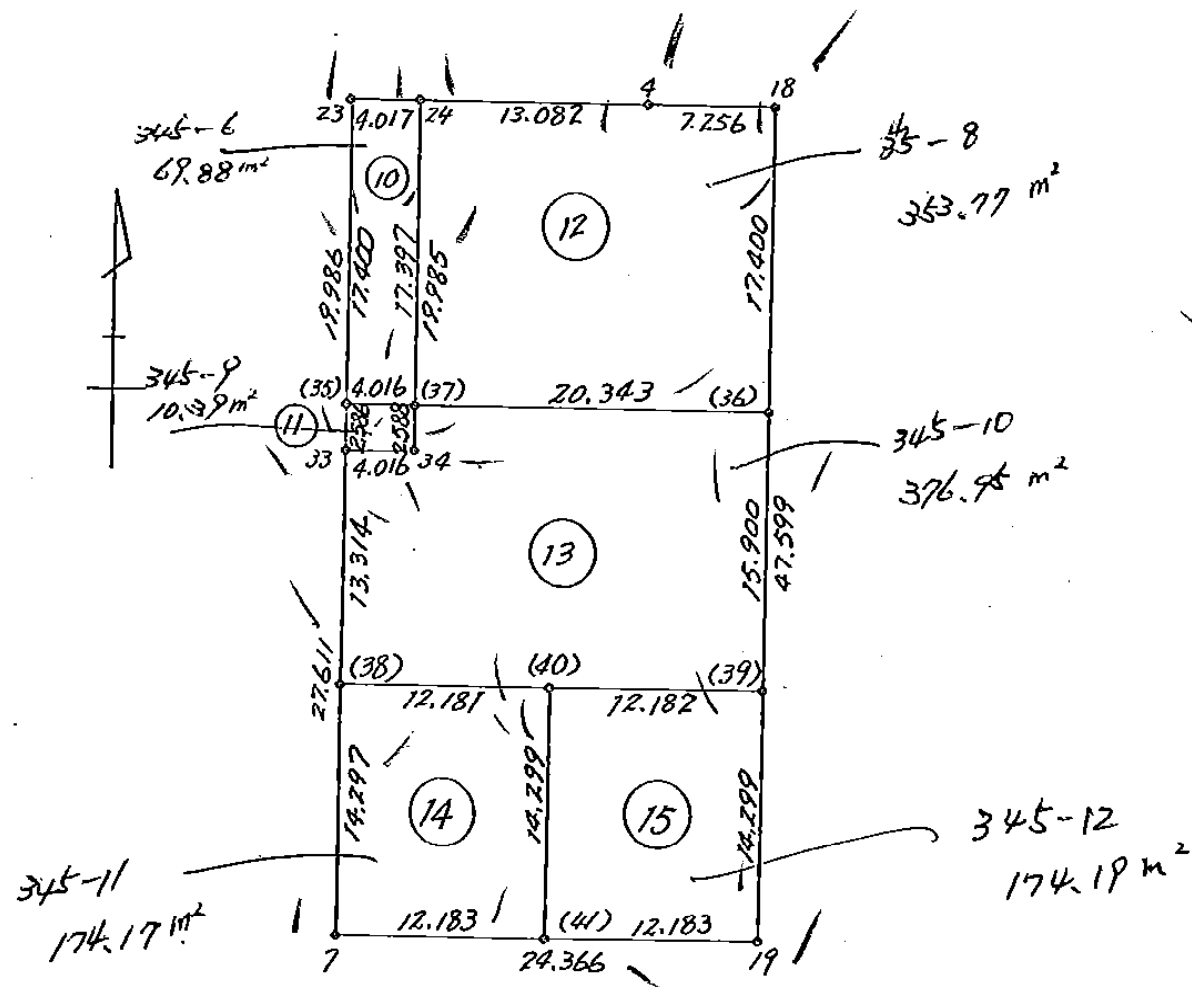 4
18
23
4.017
24
13.082
7.256
345-6
69.88m²
10
12
35-8
353.77 m²
19.986
17.400
17.397
19.985
17.400
345-9
10.39m²
(35)
4.016
(37)
20.343
(36)
11
2.586
2.588
33
4.016
34
345-10
376.95 m²
13.314
13
15.900
47.599
27.611
(38)
(40)
(39)
12.181
12.182
14.297
14
14.299
15
14.299
345-12
174.19 m²
345-11
174.17 m²
12.183
(41)
12.183
7
24.366
19